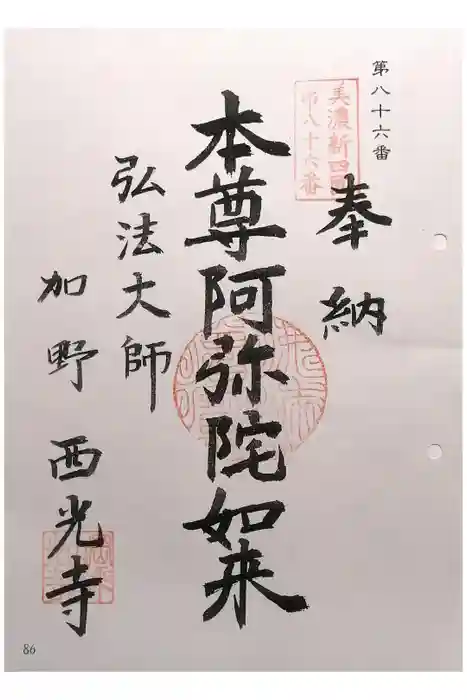 第八十六番
美濃新四国
第八十六番
奉納
本尊阿弥陀如来
弘法大師
加野 西光寺
86